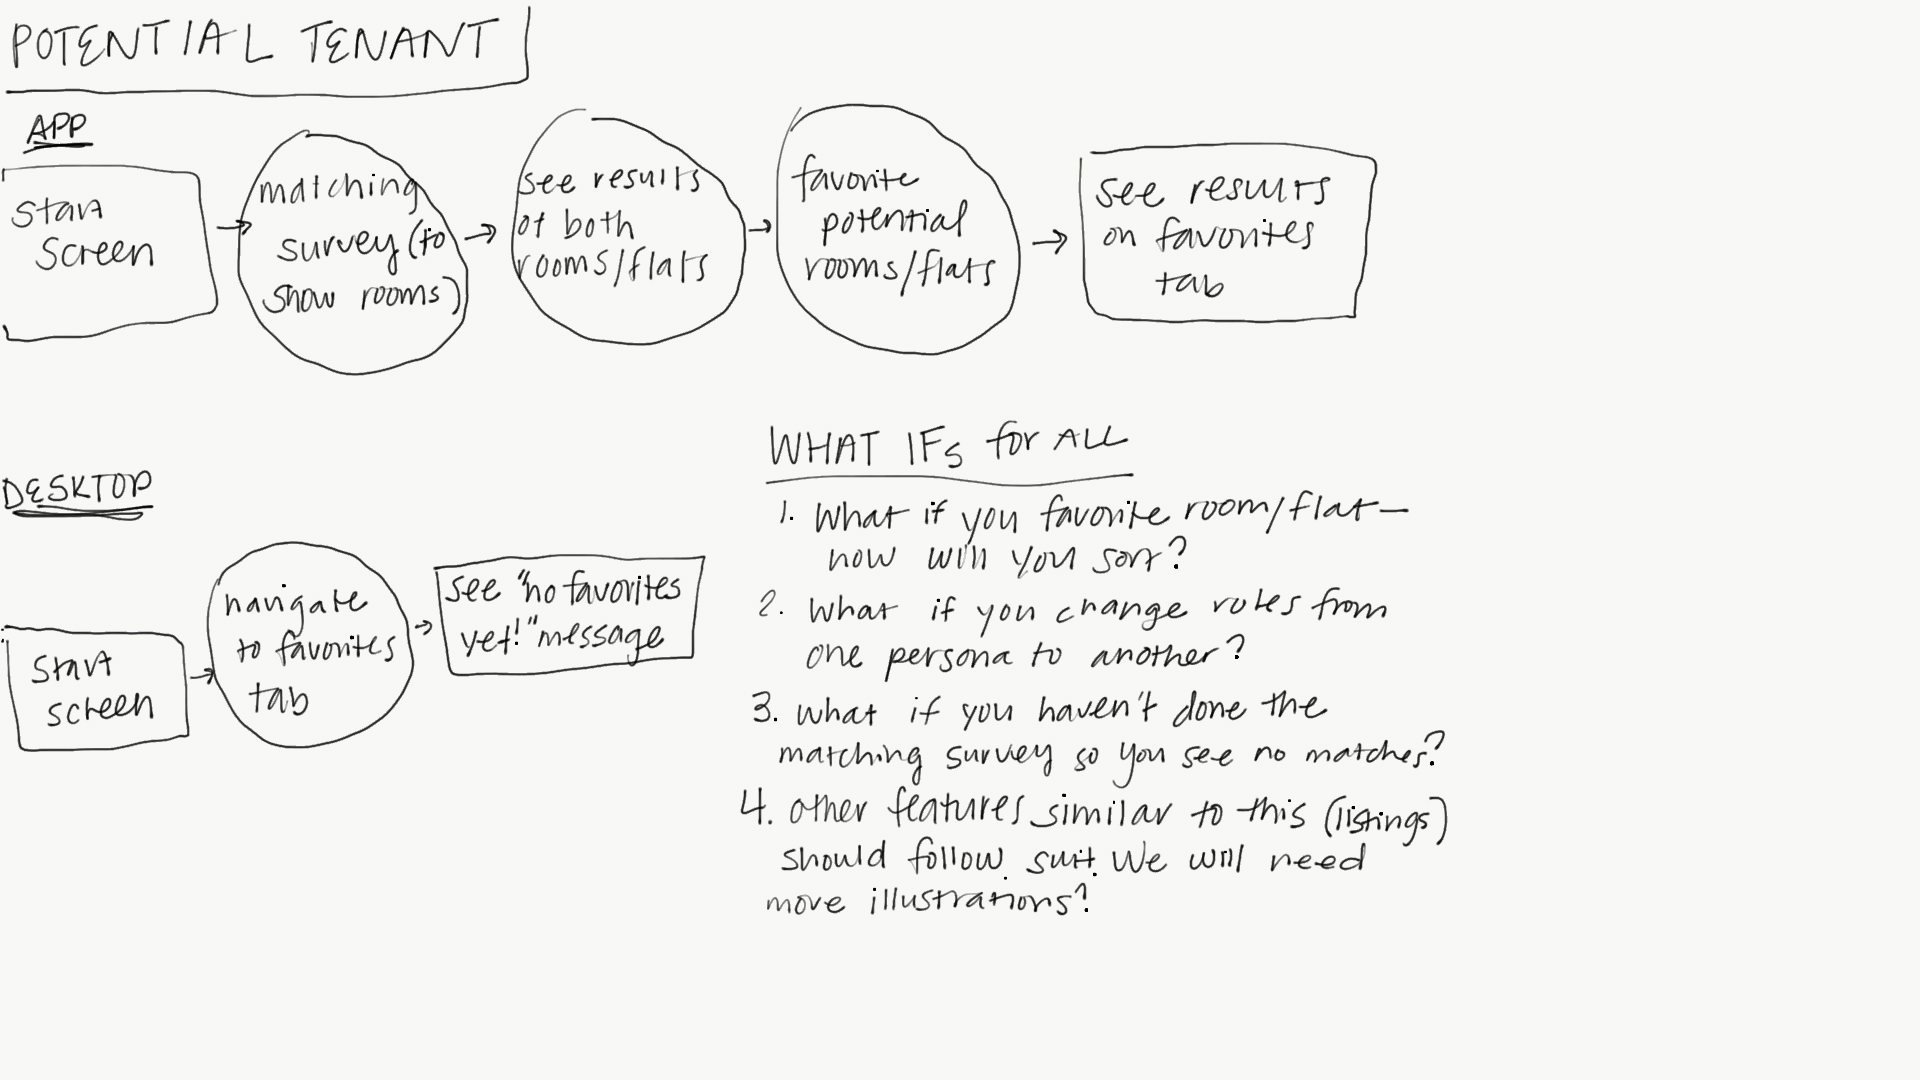 POTENTIAL TENANT
APP
start
screen
matching
survey (to
show rooms)
see results
of both
rooms/flats
favorite
potential
rooms/flats
see results
on favorites
tab
DESKTOP
start
screen
navigate
to favorites
tab
see "no favorites
yet!" message
WHAT IFs for ALL
1. What if you favorite room/flat—
how will you sort?
2. What if you change roles from
one persona to another?
3. what if you haven't done the
matching survey so you see no matches?
4. other features similar to this (listings)
should follow suit. We will need
more illustrations?